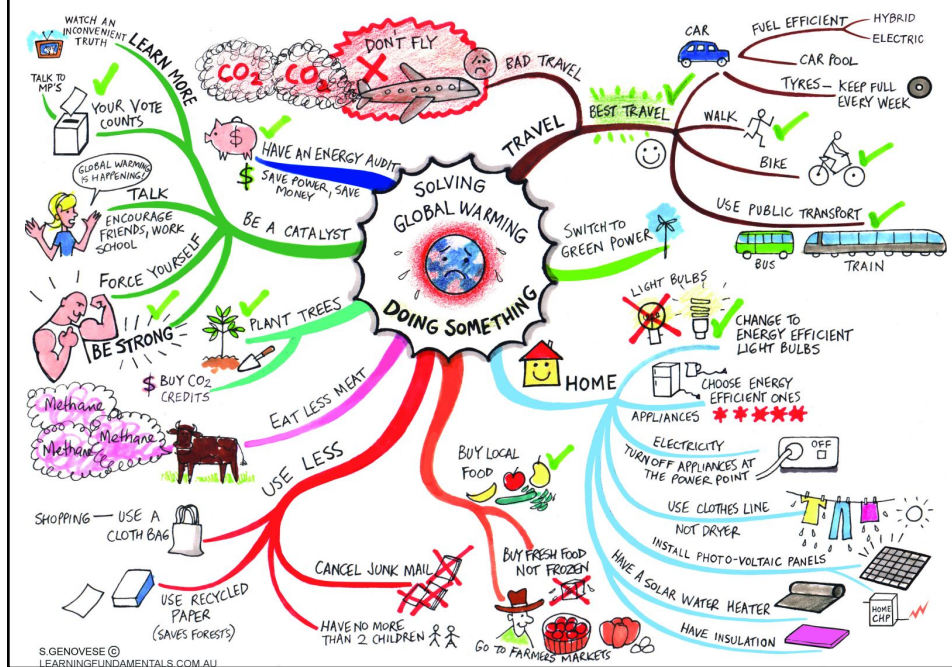 WATCH AN
INCONVENIENT
TRUTH
LEARN MORE
TALK TO
MP'S
YOUR VOTE
COUNTS
GLOBAL WARMING
IS HAPPENING!
TALK
ENCOURAGE
FRIENDS, WORK
SCHOOL
FORCE YOURSELF
BE STRONG
BE A CATALYST
$
HAVE AN ENERGY AUDIT
$ SAVE POWER, SAVE
MONEY
CO2
CO2
DON'T FLY
BAD TRAVEL
TRAVEL
BEST TRAVEL
CAR
FUEL EFFICIENT
HYBRID
ELECTRIC
CAR POOL
TYRES — KEEP FULL
EVERY WEEK
WALK
BIKE
USE PUBLIC TRANSPORT
BUS
TRAIN
SOLVING
GLOBAL WARMING
DOING SOMETHING
SWITCH TO
GREEN POWER
PLANT TREES
$ BUY CO2
CREDITS
EAT LESS MEAT
Methane
Methane
Methane
USE LESS
SHOPPING — USE A
CLOTH BAG
USE RECYCLED
PAPER
(SAVES FORESTS)
CANCEL JUNK MAIL
HAVE NO MORE
THAN 2 CHILDREN
BUY LOCAL
FOOD
BUY FRESH FOOD
NOT FROZEN
GO TO FARMERS MARKETS
HOME
LIGHT BULBS
CHANGE TO
ENERGY EFFICIENT
LIGHT BULBS
CHOOSE ENERGY
EFFICIENT ONES
APPLIANCES *****
ELECTRICITY
TURN OFF APPLIANCES AT
THE POWER POINT
OFF
USE CLOTHES LINE
NOT DRYER
INSTALL PHOTO-VOLTAIC PANELS
HOME
CHP
HAVE A SOLAR WATER HEATER
HAVE INSULATION
S.GENOVESE ©
LEARNINGFUNDAMENTALS.COM.AU